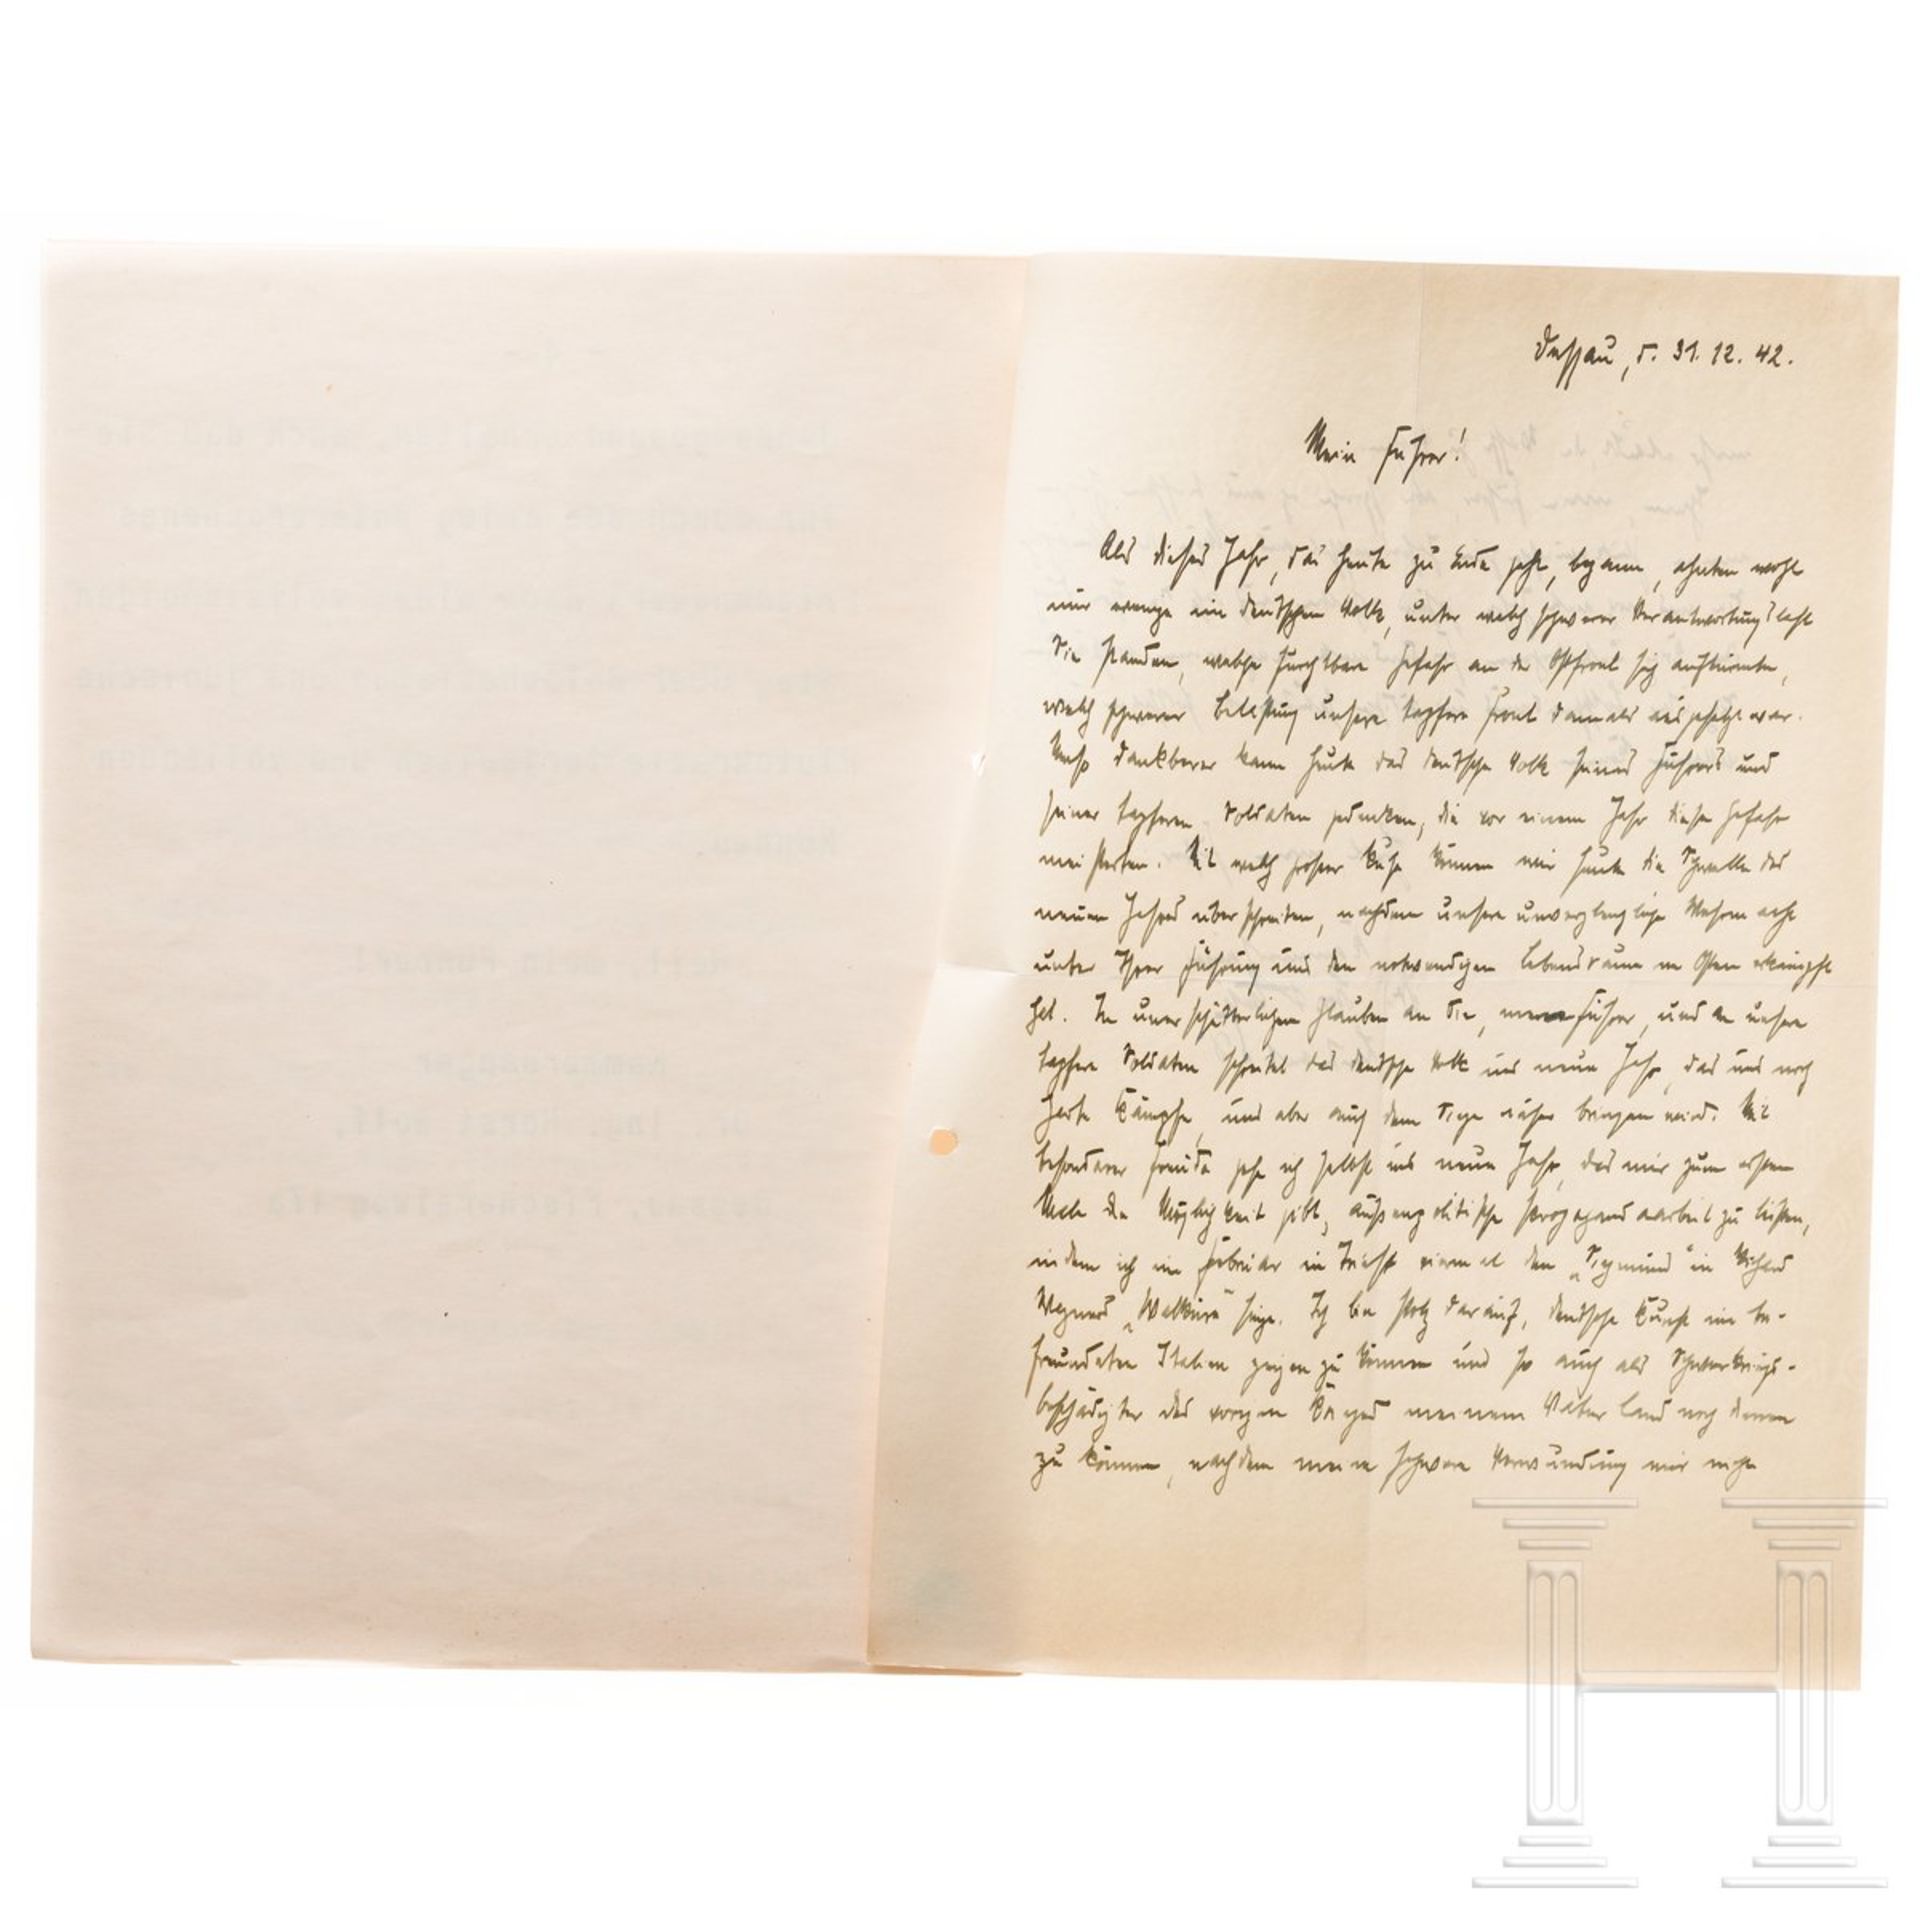 Dessau, d. 31. 12. 42.
Mein Führer!
Als dieses Jahr, das heute zu Ende geht, begann, ahnten wohl
nur wenige im deutschen Volk, unter welch schwerer Verantwortungslast
Sie standen, welche furchtbare Gefahr an der Ostfront sich auftürmte,
welch schwerer Belastung unsere tapfere Front damals ausgesetzt war.
dankbarer kann heute das deutsche Volk seines Führers und
seiner tapferen Soldaten gedenken, die vor einem Jahr diese Gefahr
meisterten. Mit welch großer Ruhe können wir heute die Schwelle des
neuen Jahres überschreiten, nachdem unsere unvergleichliche Wehrmacht
unter Ihrer Führung uns den notwendigen Lebensraum im Osten erkämpft
hat. Im unerschütterlichen Glauben an Sie, mein Führer, und an unsere
tapfere Soldaten schreitet das deutsche Volk ins neue Jahr, das uns noch
harte Kämpfe, uns aber auch dem Siege näher bringen wird. Mit
besonderer Freude gehe ich selbst ins neue Jahr, das mir zum ersten
Male die Möglichkeit gibt, außenpolitische Propagandaarbeit zu leisten,
indem ich im Februar in Triest einmal den „Siegmund" in Richard
Wagners „Walküre" singe. Ich bin stolz darauf, deutsche Kunst im be-
freundeten Italien zeigen zu können und so auch als Schwerkriegs-
beschädigter des vorigen Krieges meinem Vaterland noch dienen
zu können, nachdem meine schwere Verwundung mir nicht